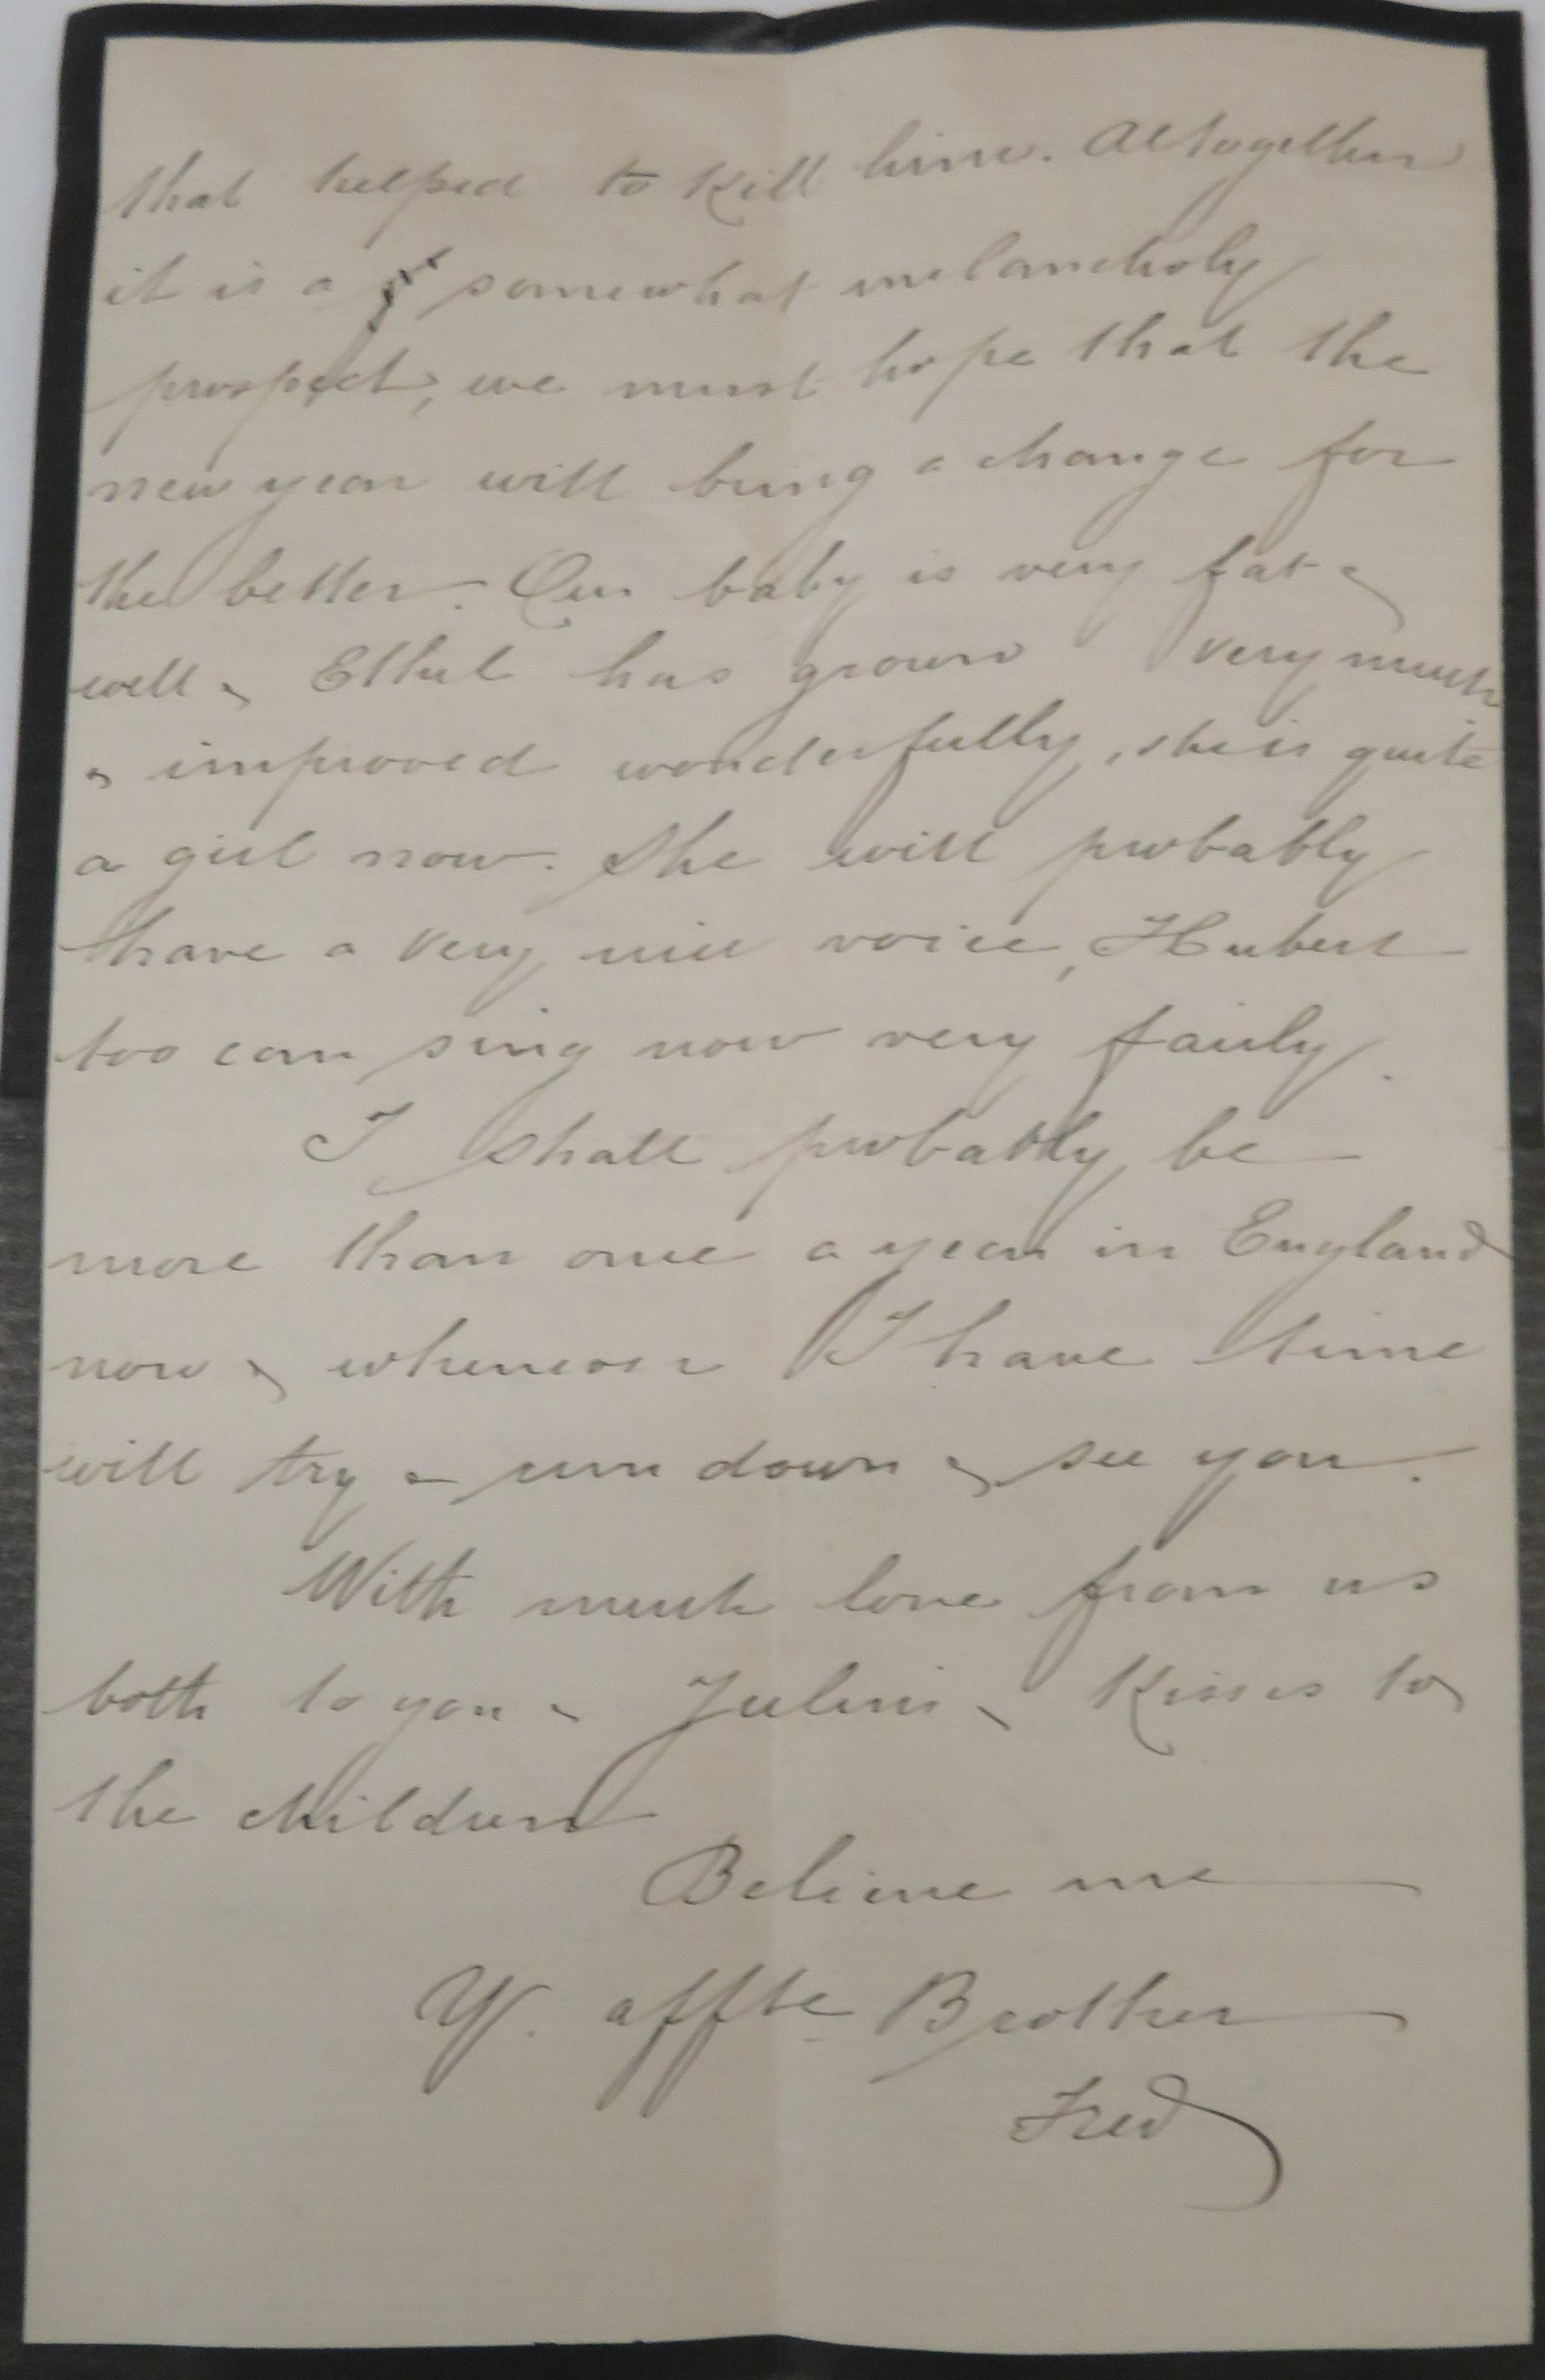 that helped to kill him. Altogether
it is a somewhat melancholy
prospect, we must hope that the
new year will bring a change for
the better. Our baby is very fat &
well & Ethel has grown very much
& improved wonderfully, she is quite
a girl now. She will probably
have a very nice voice, Hubert
too can sing now very fairly.
I shall probably be
more than once a year in England
now & whenever I have time
will try & run down & see you.
With much love from us
both to you & Julius & kisses to
the children
Believe me
Yr. affte Brother
Fred